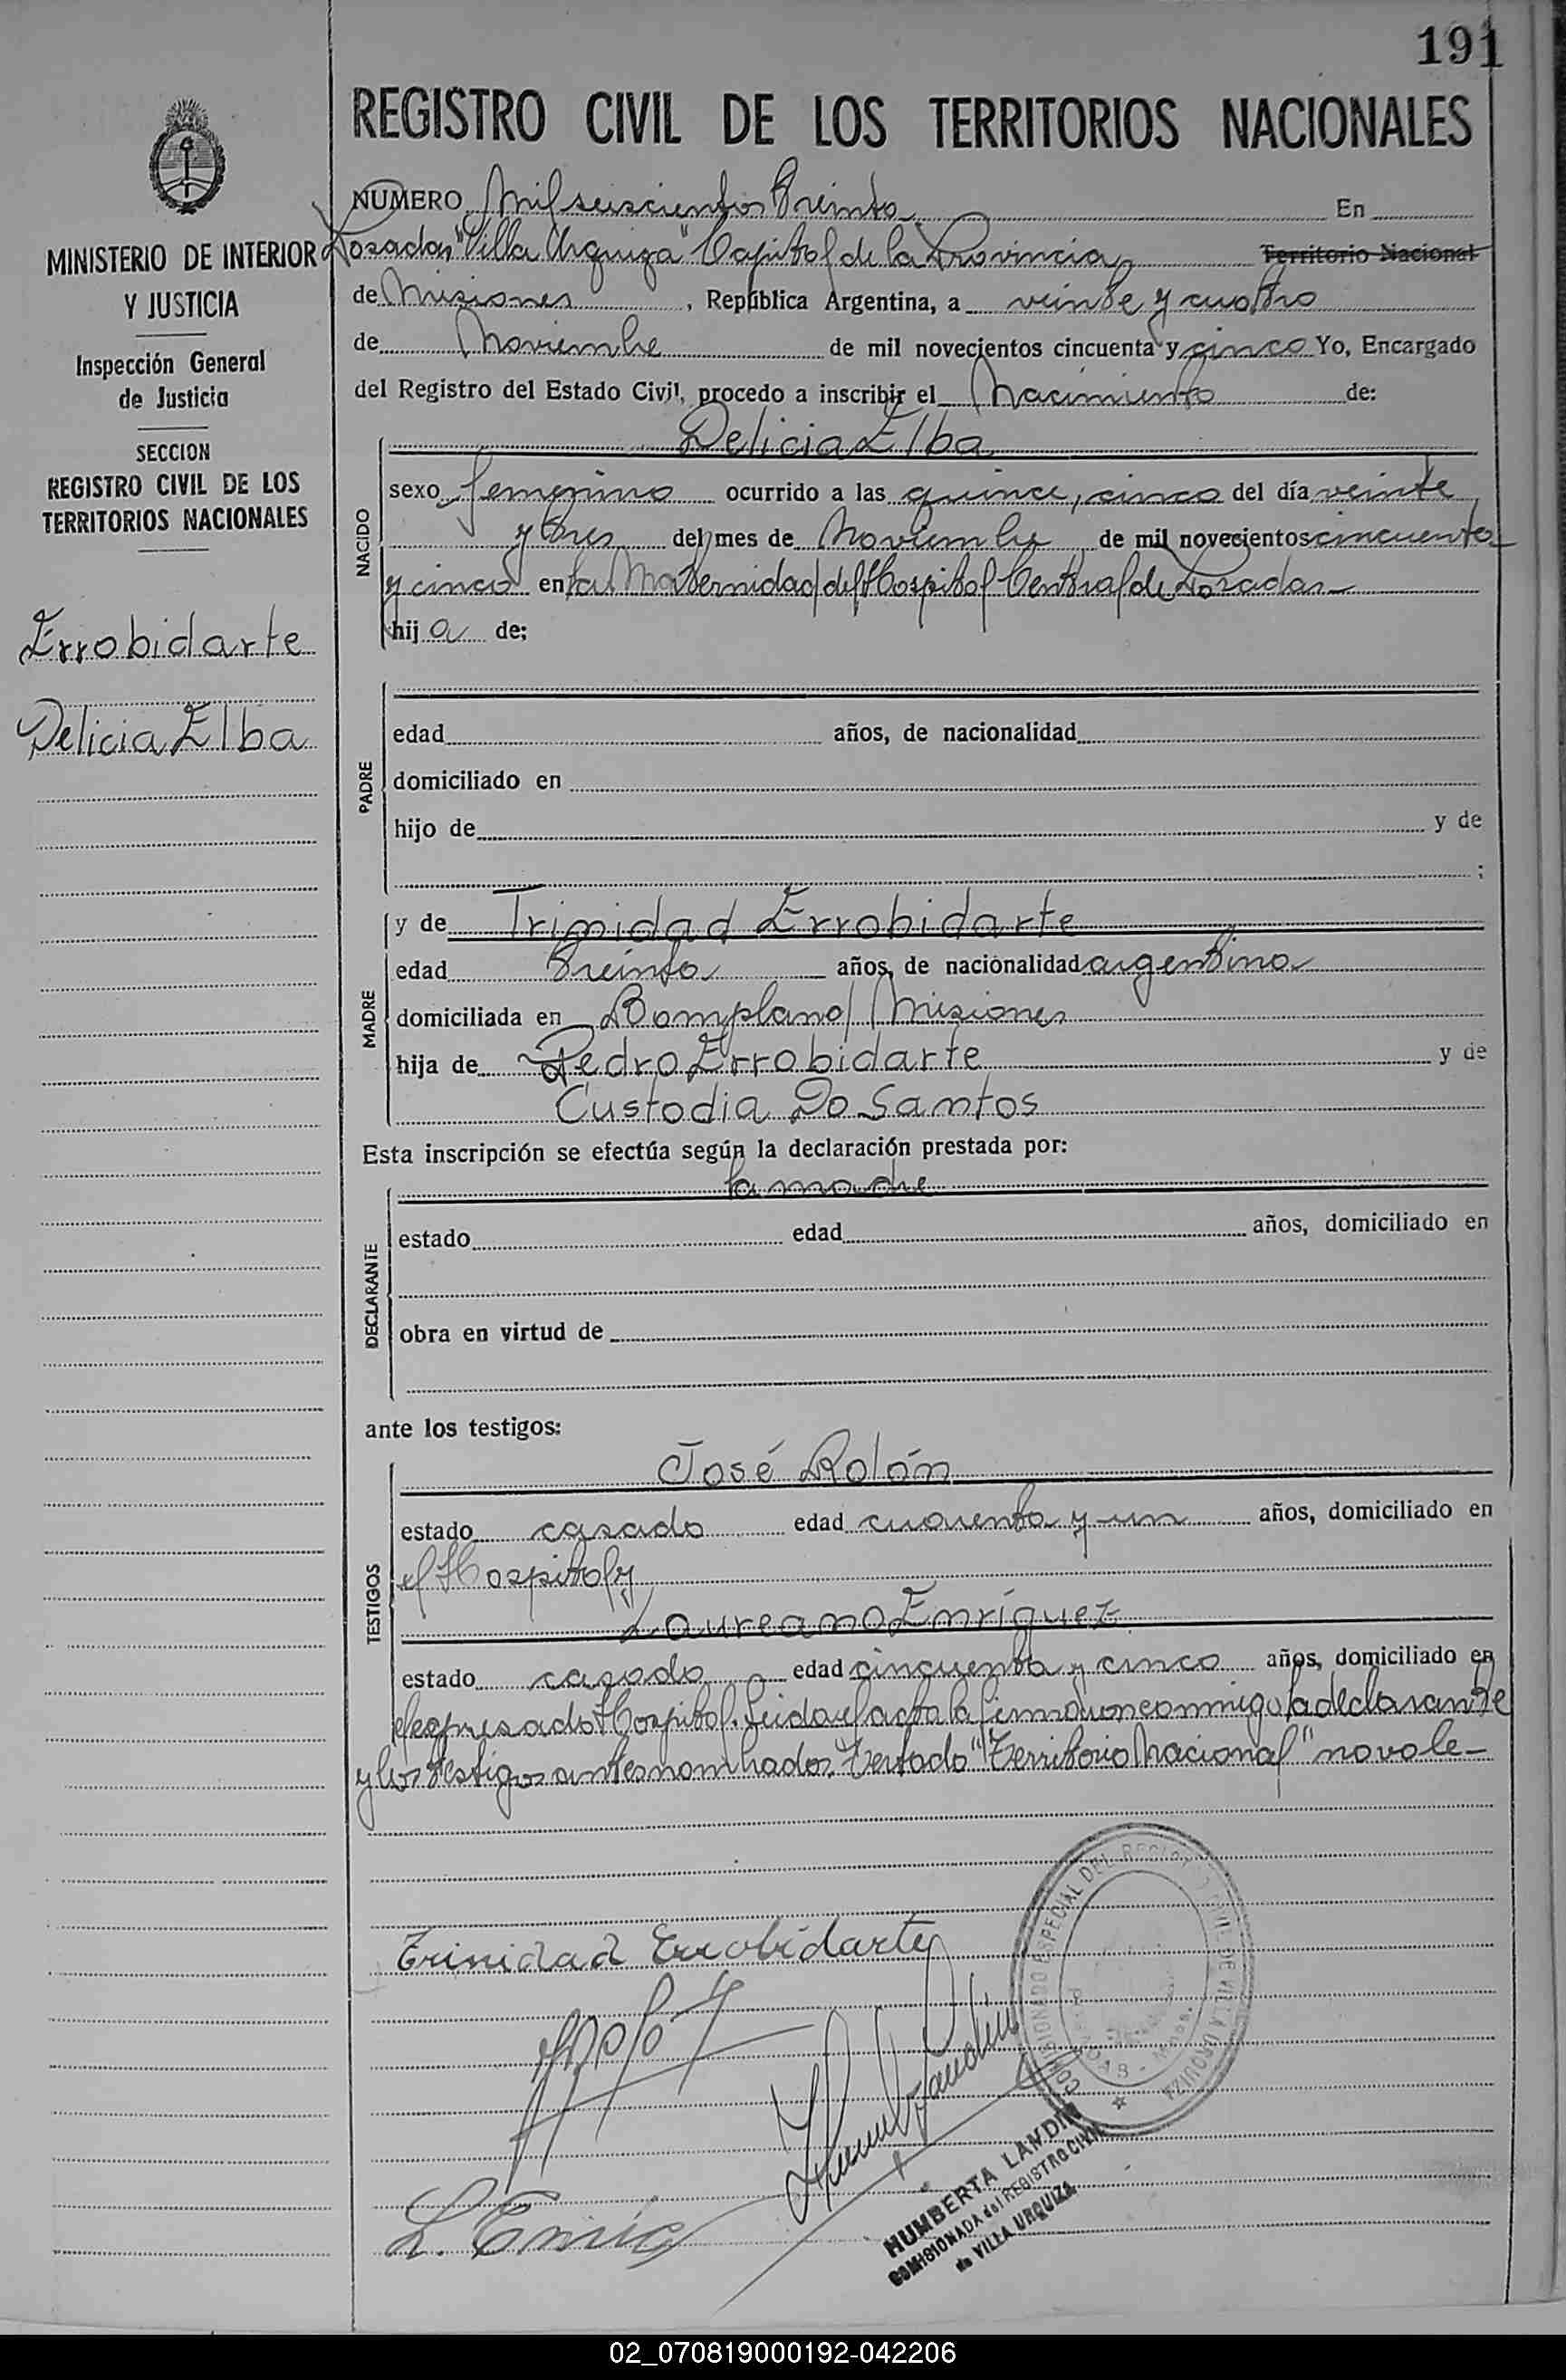 191
REGISTRO CIVIL DE LOS TERRITORIOS NACIONALES
MINISTERIO DE INTERIOR
Y JUSTICIA
Inspección General
de Justicia
SECCION
REGISTRO CIVIL DE LOS
TERRITORIOS NACIONALES
Errobidarte
Delicia Elba
NUMERO Mil seiscientos treinta En
Posadas "Villa Urquiza" Capital de la Provincia Territorio Nacional
de Misiones, República Argentina, a veinte y cuatro
de Noviembre de mil novecientos cincuenta y cinco Yo, Encargado
del Registro del Estado Civil, procedo a inscribir el Nacimiento de:
NACIDO
Delicia Elba
sexo femenino ocurrido a las quince, cinco del día veinte
y tres del mes de Noviembre de mil novecientos cincuenta
y cinco en la Maternidad del Hospital Central de Posadas
hija de;
PADRE
edad años, de nacionalidad
domiciliado en
hijo de y de
;
MADRE
y de Trinidad Errobidarte
edad treinta años, de nacionalidad argentina
domiciliada en Bompland Misiones
hija de Pedro Errobidarte y de
Custodia Do Santos
Esta inscripción se efectúa según la declaración prestada por:
DECLARANTE
la madre
estado edad años, domiciliado en
obra en virtud de
ante los testigos:
TESTIGOS
José Rolón
estado casado edad cuarenta y un años, domiciliado en
el Hospital y
Laureano Enríquez
estado casado edad cincuenta y cinco años, domiciliado en
el expresado Hospital. Leida el acta la firmaron conmigo la declarante
y los testigos antes nombrados. Testado "Territorio Nacional" no vale-
Trinidad Errobidarte
COMISIONADO ESPECIAL DEL REGISTRO CIVIL DE VILLA URQUIZA
POSADAS - Mnes.
HUMBERTA LANDIN
COMISIONADA del REGISTRO CIVIL
de VILLA URQUIZA
02_070819000192-042206